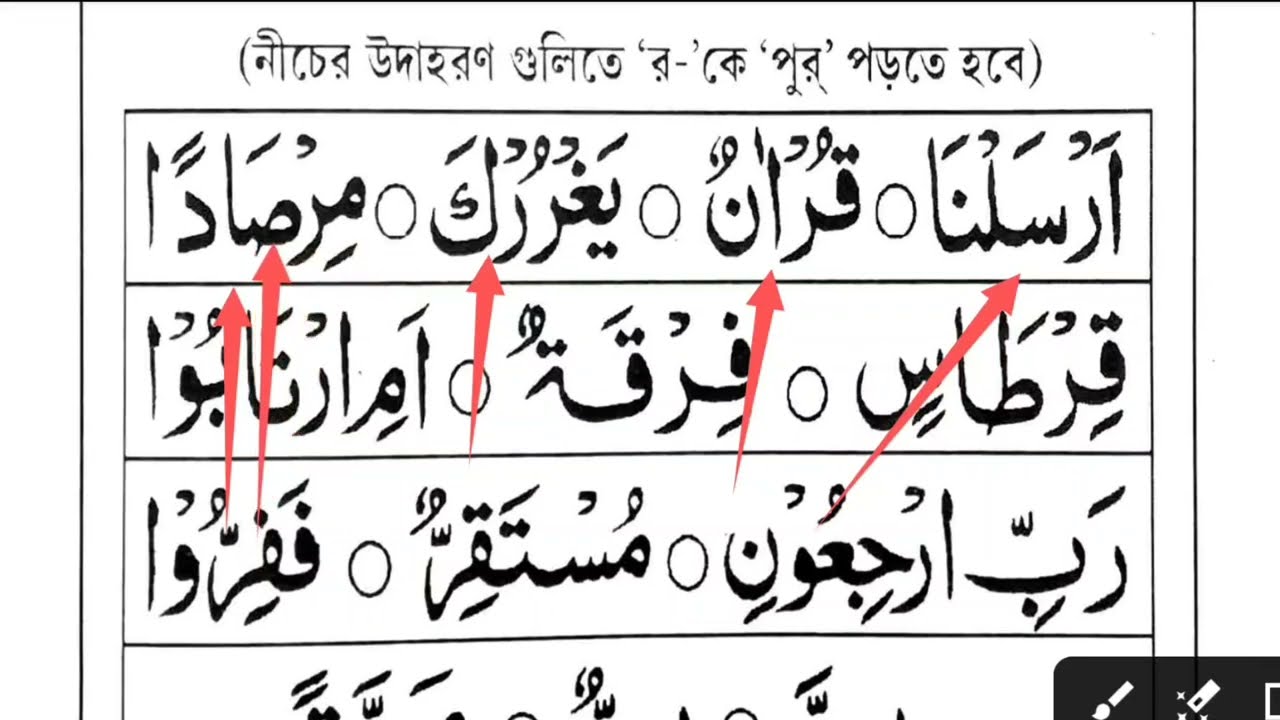 (নীচের উদাহরণ গুলিতে ‘র-’কে ‘পুর্’ পড়তে হবে)
اَرْسَلْنَا ○ قُرْاٰنٌ ○ يَغْرُرْكَ ○ مِرْصَادًا
قِرْطَاسٍ ○ فِرْقَةٌ ○ اَمِ ارْتَابُوْا
رَبِّ ارْجِعُوْنِ ○ مُسْتَقِرٌّ ○ فَفِرُّوْا